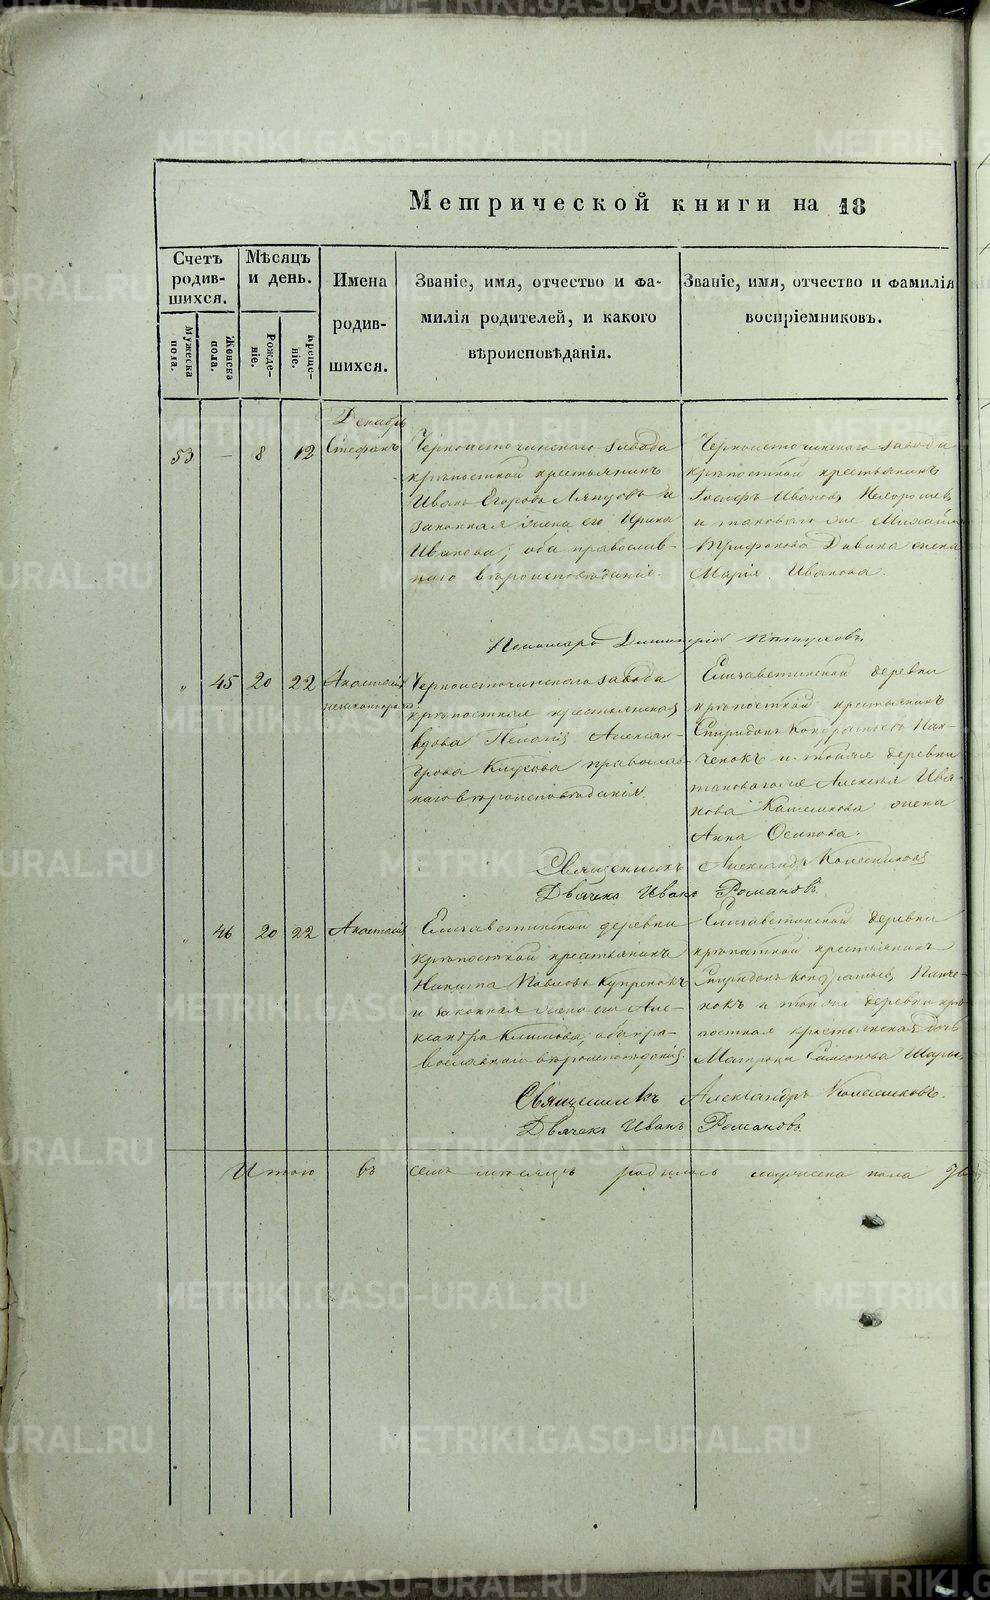 Метрической книги на 18
Счетъ родив-шихся.
Мужеска пола.
Женска пола.
Мѣсяцъ и день.
Рожде-ніе.
Креще-ніе.
Имена
родив-
шихся.
Званіе, имя, отчество и фа-
милія родителей, и какого
вѣроисповѣданія.
Званіе, имя, отчество и фамилія
воспріемниковъ.
Декабрь
53 — 8 12 Стефанъ
Черноисточинскаго завода
крѣпостной крестьянинъ
Иванъ Егоровъ и
законная жена его Ирина
Иванова, оба православ-
наго вѣроисповѣданія.
Черноисточинскаго завода
крѣпостной крестьянинъ
Іосифъ Ивановъ
и таковаго же Михаила
Трифонова жена
Марія Иванова.
Пономарь Димитрій Пѣтуховъ
„ 45 20 22 Анастасія
незаконнорож.
Черноисточинскаго завода
крѣпостная крестьянская
вдова Алексан-
дрова православ-
наго вѣроисповѣданія.
Елизаветинской деревни
крѣпостной крестьянинъ
Спиридонъ Кондратьевъ Пан-
ченокъ и той же деревни
таковаго же Алексѣя Ива-
нова жена
Анна Осипова.
Священникъ Александръ Колесниковъ
Дьячекъ Иванъ Романовъ
„ 46 20 22 Анастасія
Елизаветинской деревни
крѣпостной крестьянинъ
Никита Павловъ Купренокъ
и законная жена его Але-
ксандра Климова, оба пра-
вославнаго вѣроисповѣданія.
Елизаветинской деревни
крѣпостной крестьянинъ
Спиридонъ Кондратьевъ Панче-
нокъ и той же деревни крѣ-
постная крестьянская дочь
Матрона Самсонова
Священникъ Александръ Колесниковъ.
Дьячекъ Иванъ Романовъ
Итого въ семъ мѣсяцѣ родилось мужеска пола
METRIKI.GASO-URAL.RU